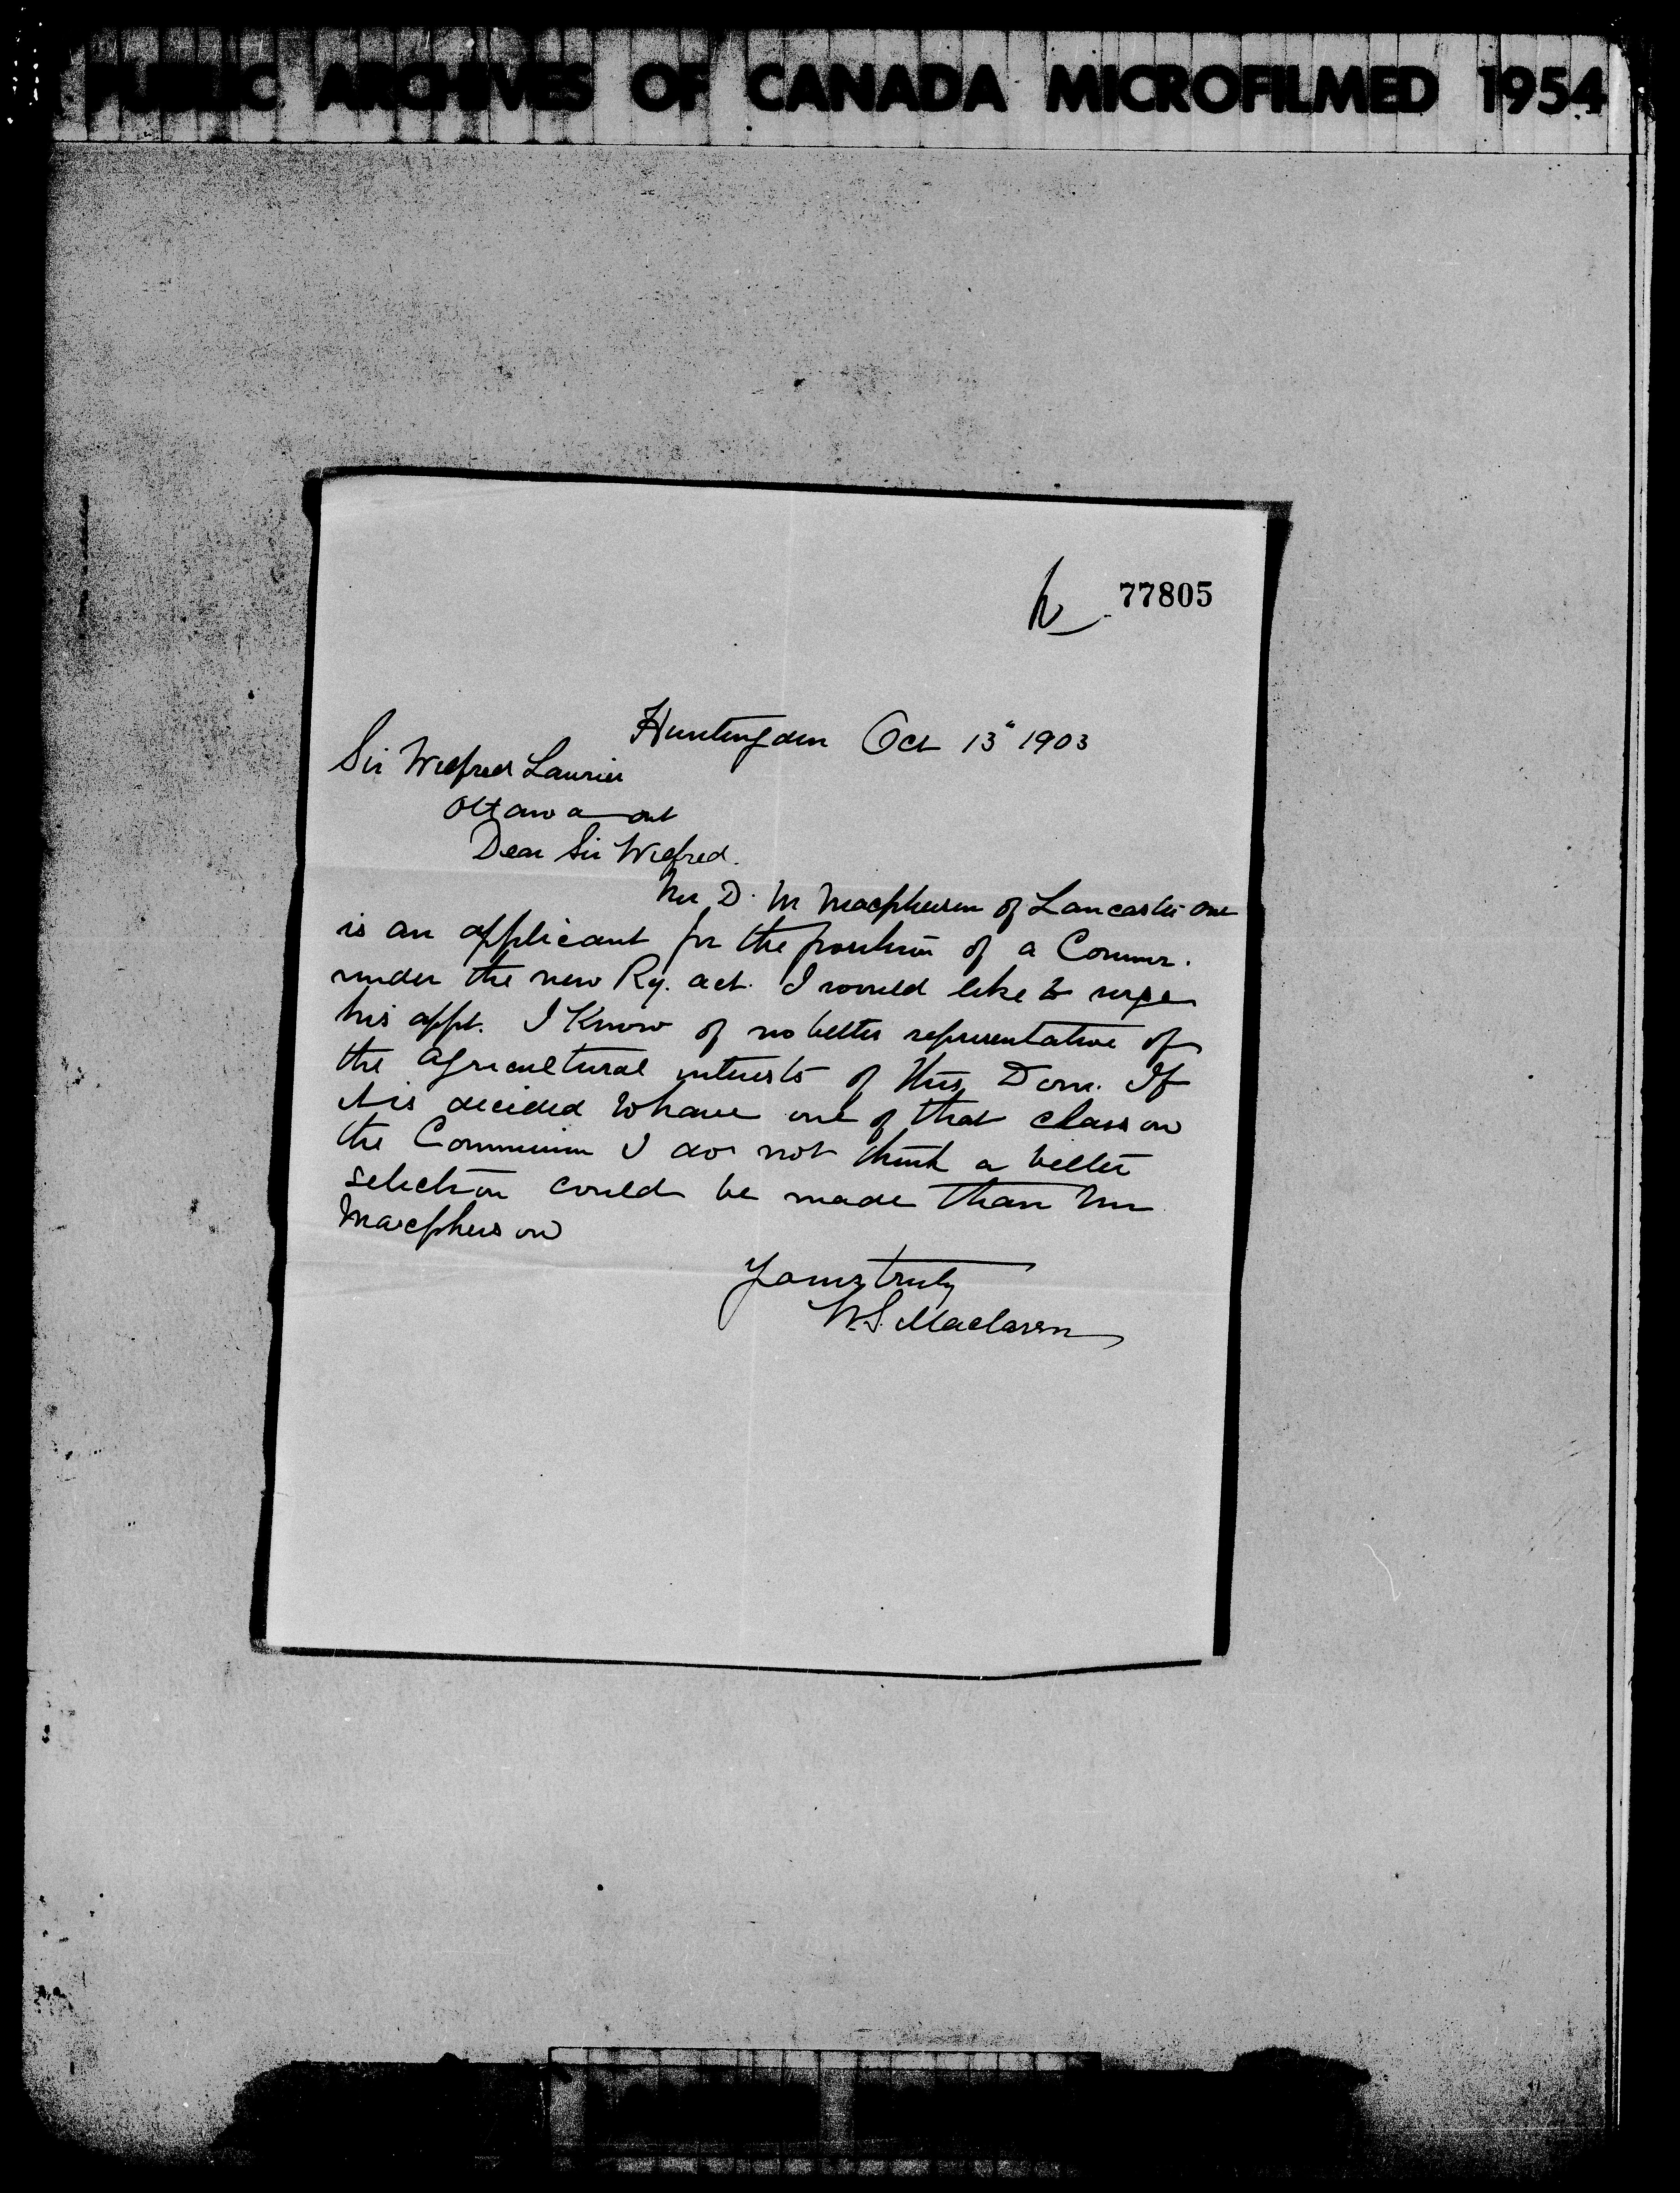 PUBLIC ARCHIVES OF CANADA MICROFILMED 1954
77805
Huntingdon Oct 13" 1903
Sir Wilfred Laurier
Ottawa Ont
Dear Sir Wilfred.
Mr D. M Macpherson of Lancaster Ont
is an applicant for the position of a Commr.
under the new Ry. act. I would like to urge
his appt. I know of no better representative of
the agricultural interests of this Dom. If
it is decided to have one of that class on
the Commission I do not think a better
selection could be made than Mr
Macpherson
Yours truly
W.S. Maclaren